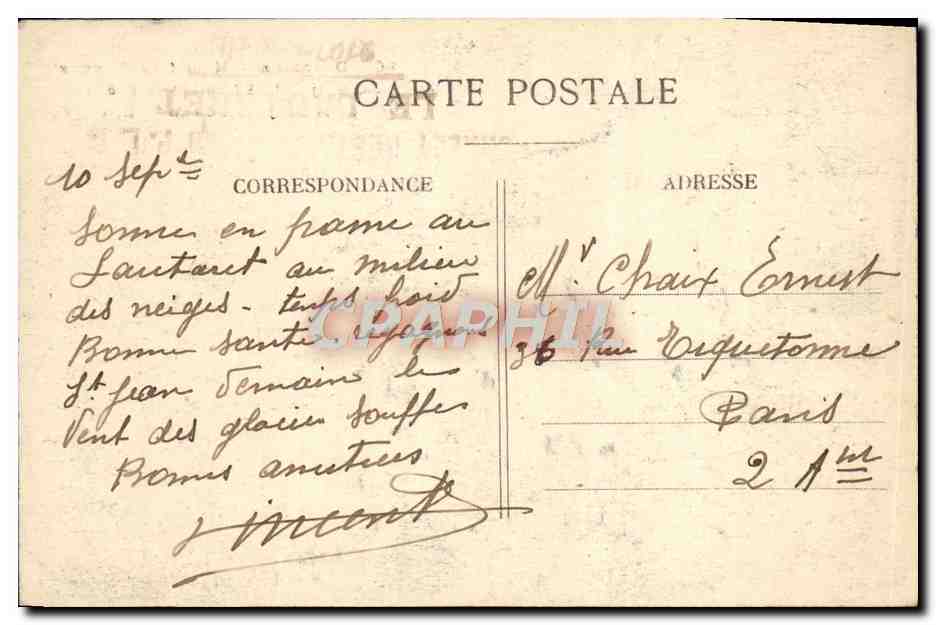 CARTE POSTALE
CORRESPONDANCE
10 Sept
Sommes en panne au
Lautaret au milieu
des neiges - temps froid
Bonne santé regagnons
St Jean demain le
vent des glaciers souffle
Bonnes amitiés
Vincent
ADRESSE
Mr. Chaix Ernest
36 Rue Tiquetonne
Paris
2 Arrt
CPAPHIL